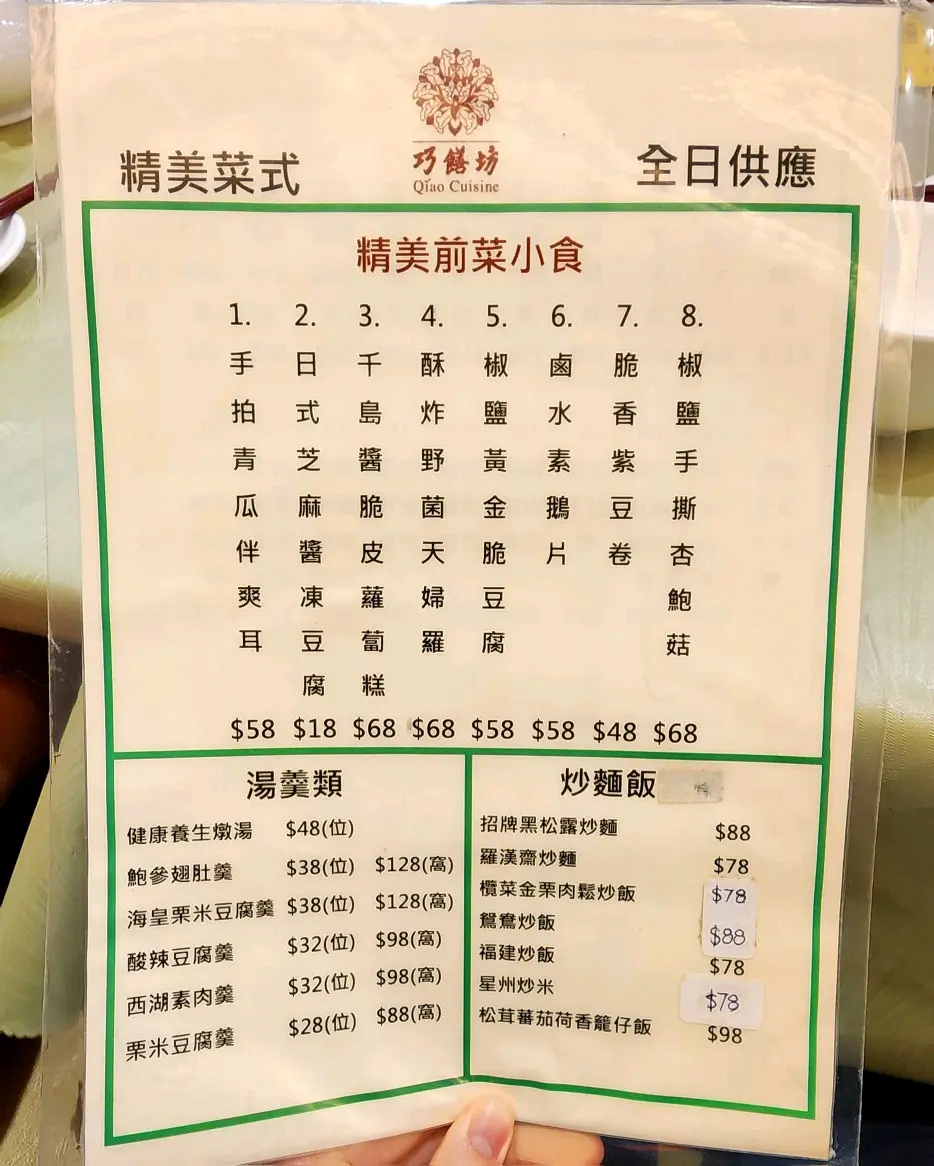 巧饍坊
Qiao Cuisine
精美菜式
全日供應
精美前菜小食
1. 手拍青瓜伴爽耳 $58
2. 日式芝麻醬凍豆腐 $18
3. 千島醬脆皮蘿蔔糕 $68
4. 酥炸野菌天婦羅 $68
5. 椒鹽黃金脆豆腐 $58
6. 鹵水素鵝片 $58
7. 脆香紫豆卷 $48
8. 椒鹽手撕杏鮑菇 $68
湯羹類
健康養生燉湯 $48(位)
鮑參翅肚羹 $38(位) $128(窩)
海皇栗米豆腐羹 $38(位) $128(窩)
酸辣豆腐羹 $32(位) $98(窩)
西湖素肉羹 $32(位) $98(窩)
栗米豆腐羹 $28(位) $88(窩)
炒麵飯
招牌黑松露炒麵 $88
羅漢齋炒麵 $78
欖菜金栗肉鬆炒飯 $78
鴛鴦炒飯 $88
福建炒飯 $78
星州炒米 $78
松茸蕃茄荷香籠仔飯 $98